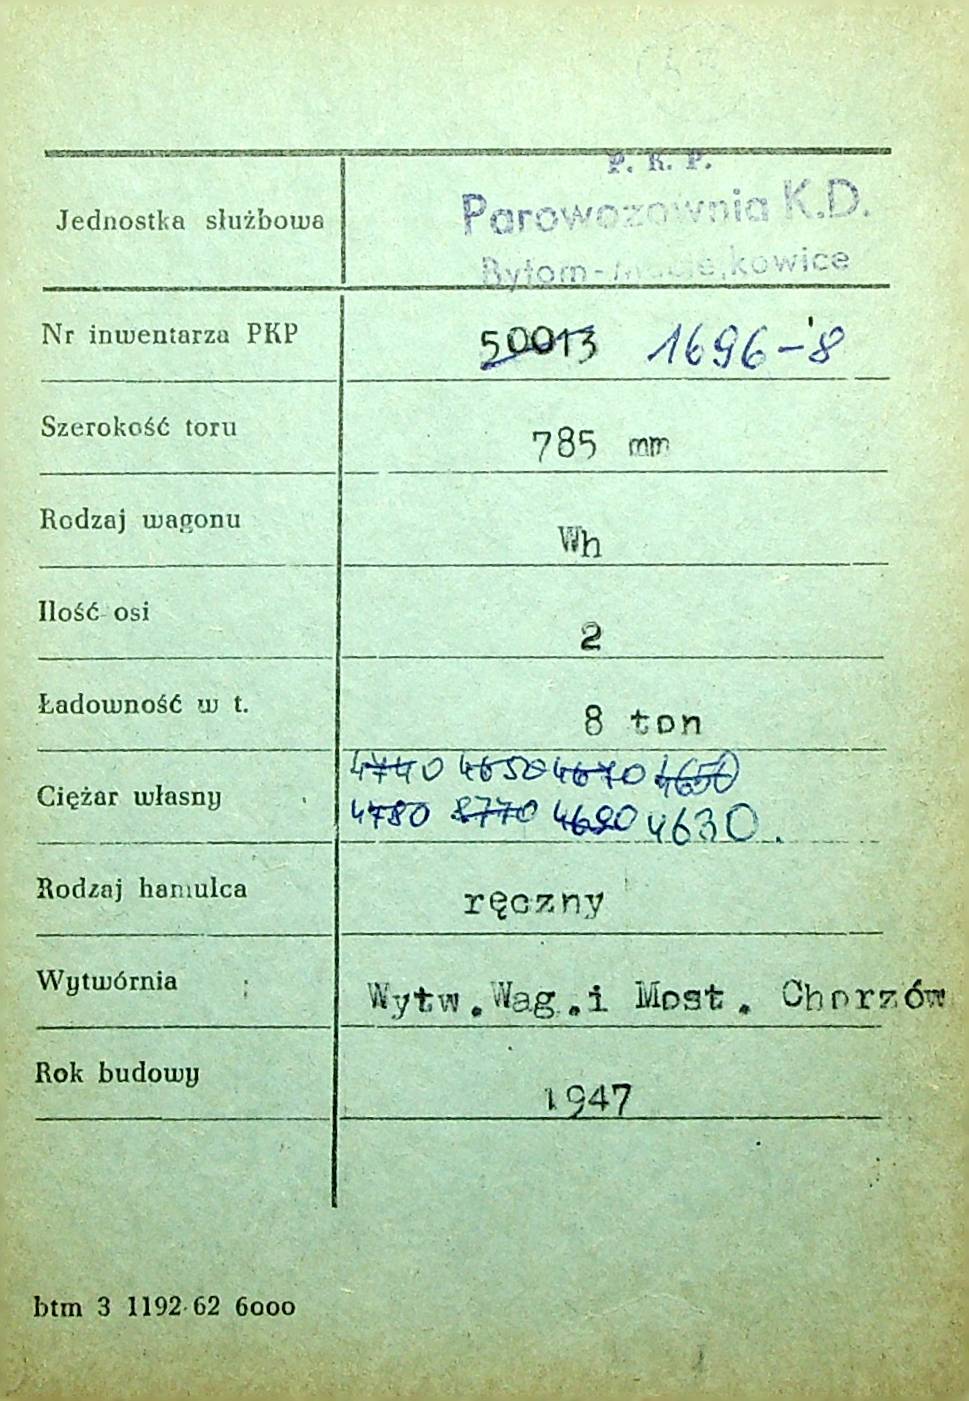 P. K. P.
Jednostka służbowa Parowozownia K.D.
Bytom-Maciejkowice
Nr inwentarza PKP 50013 1696-8
Szerokość toru 785 mm
Rodzaj wagonu Wh
Ilość osi 2
Ładowność w t. 8 ton
4740 4650 4670 4650
Ciężar własny 4780 8770 4690 4630.
Rodzaj hamulca ręczny
Wytwórnia Wytw.Wag.i Most. Chorzów
Rok budowy 1947
btm 3 1192-62 6000